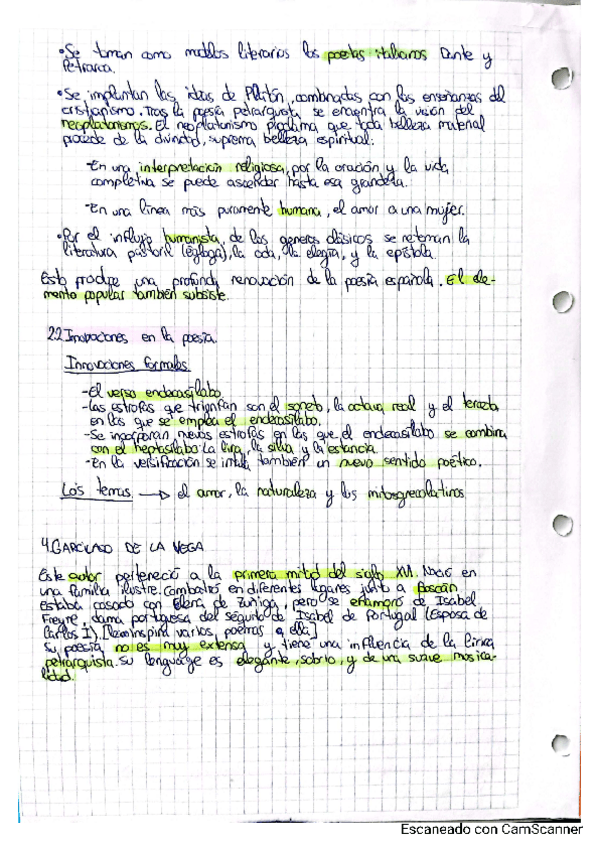 •Se toman como modelos literarios los poetas italianos Dante y
Petrarca.
•Se implantan las ideas de Platón, combinadas con las enseñanzas del
cristianismo. Tras la poesía petrarquista se encuentra la visión del
neoplatonismos. El neoplatonismo proclama que toda belleza material
procede de la divinidad, suprema belleza espiritual.
-En una interpretación religiosa, por la oración y la vida
completiva se puede ascender hasta esa grandeza.
-En una línea más puramente humana, el amor a una mujer.
•Por el influjo humanista, de los géneros clásicos se retoman la
literatura pastoril (égloga), la oda, la elegía, y la epístola.
Esto produce una profunda renovación de la poesía española. El ele-
mento popular también subsiste.
2.2 Innovaciones en la poesía.
Innovaciones formales
-El verso endecasílabo.
-Las estrofas que triunfan son el soneto, la octava real y el terceto
en las que se emplea el endecasílabo.
-Se incorporan nuevas estrofas en las que el endecasílabo se combina
con el heptosílabo: La lira, la silva y la estancia.
-En la versificación se instala también un nuevo sentido poético.
Los temas → el amor, la naturaleza y los mitos grecolatinos
4. GARCILASO DE LA VEGA
Este autor perteneció a la primera mitad del siglo XVI. Nació en
una familia ilustre. Combatió en diferentes lugares junto a Boscán
Estaba casado con Elena de Zúñiga, pero se enamoró de Isabel
Freyre, dama portuguesa del séquito de Isabel de Portugal (Esposa de
Carlos I). varios poemas a ella]
Su poesía no es muy extensa y tiene una influencia de la lírica
petrarquista. Su lenguage es elegante, sobrio, y de una suave musica-
lidad.
Escaneado con CamScanner